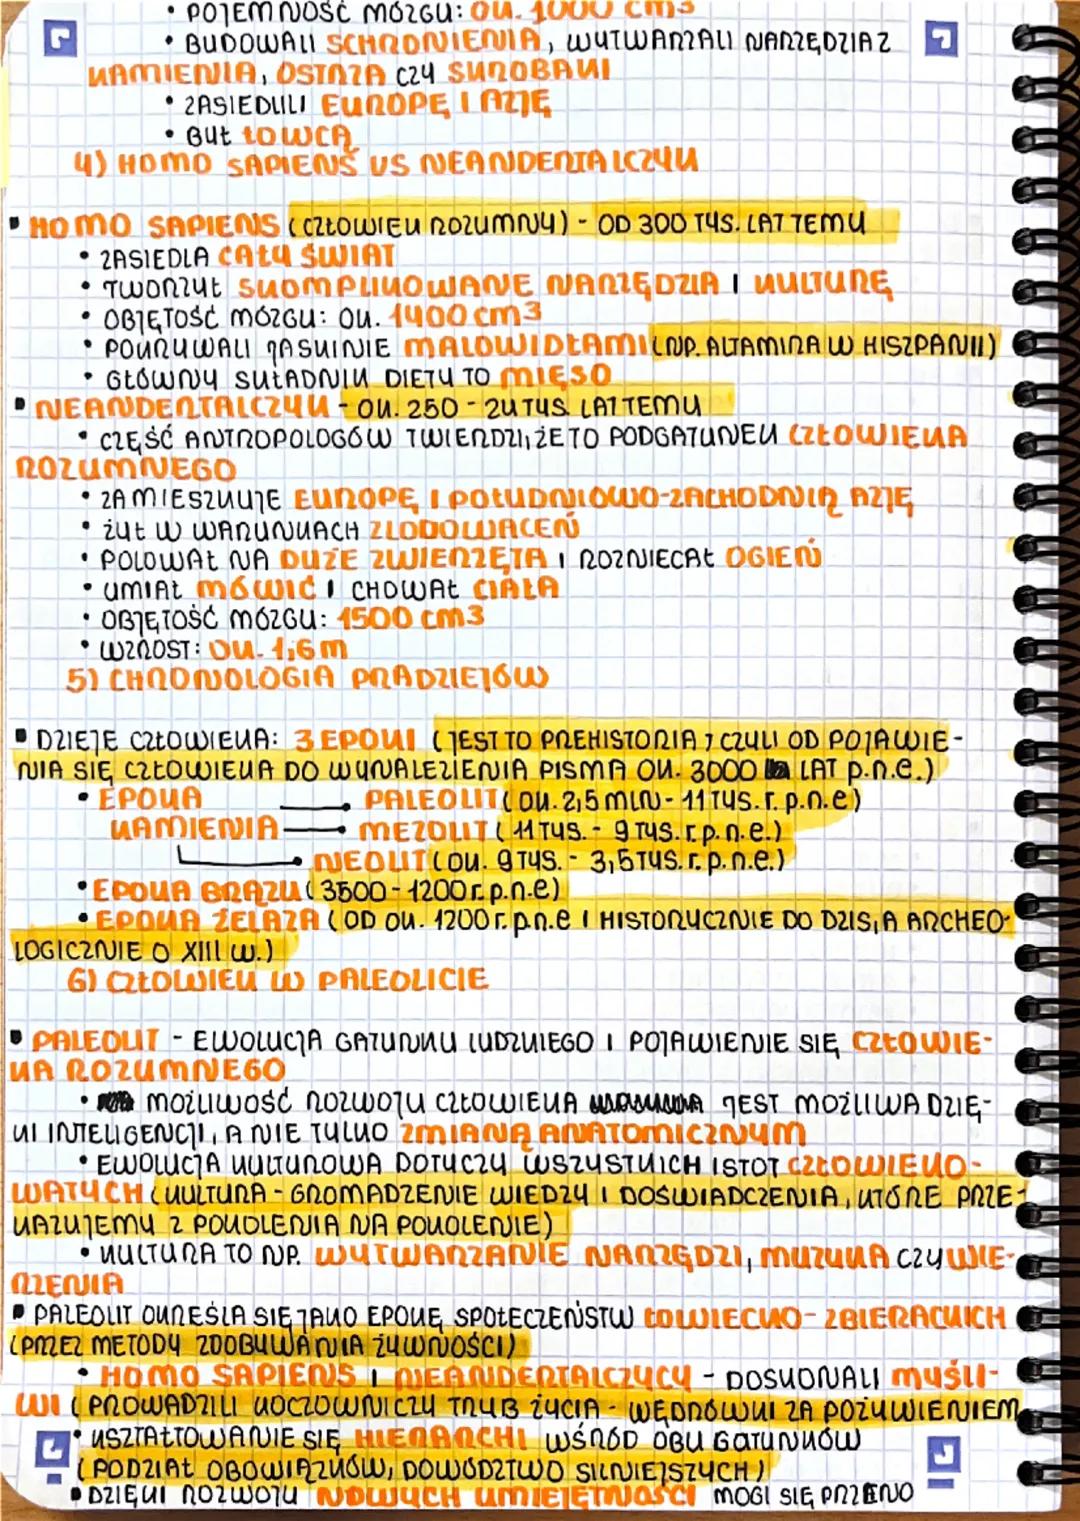 • POJEMNOŚĆ MÓZGU: OK. 1000 CM3
• BUDOWALI SCHRONIENIA, WYTWARZALI NARZĘDZIA Z
KAMIENIA, OSTRZA CZY SKROBAKI
• ZASIEDLILI EUROPĘ I AZJĘ
• BYŁ ŁOWCĄ
4) HOMO SAPIENS VS NEANDERTALCZYK
▪ HOMO SAPIENS (CZŁOWIEK ROZUMNY) - OD 300 TYS. LAT TEMU
• ZASIEDLA CAŁY ŚWIAT
• TWORZYŁ SKOMPLIKOWANE NARZĘDZIA I KULTURĘ
• OBJĘTOŚĆ MÓZGU: OK. 1400 cm3
• POKRYWALI JASKINIE MALOWIDŁAMI (NP. ALTAMIRA W HISZPANII)
• GŁÓWNY SKŁADNIK DIETY TO MIĘSO
▪ NEANDERTALCZYK - OK. 250 - 24 TYS. LAT TEMU
• CZĘŚĆ ANTROPOLOGÓW TWIERDZI, ŻE TO PODGATUNEK CZŁOWIEKA
ROZUMNEGO
• ZAMIESZKUJE EUROPĘ I POŁUDNIOWO-ZACHODNIĄ AZJĘ
• ŻYŁ W WARUNKACH ZLODOWACEŃ
• POLOWAŁ NA DUŻE ZWIERZĘTA I ROZNIECAŁ OGIEŃ
• UMIAŁ MÓWIĆ I CHOWAŁ CIAŁA
• OBJĘTOŚĆ MÓZGU: 1500 cm3
• WZROST: OK. 1,6 m
5) CHRONOLOGIA PRADZIEJÓW
▪ DZIEJE CZŁOWIEKA: 3 EPOKI (JEST TO PREHISTORIA, CZYLI OD POJAWIE-
NIA SIĘ CZŁOWIEKA DO WYNALEZIENIA PISMA OK. 3000 LAT p.n.e.)
• EPOKA → PALEOLIT (OK. 2,5 MLN - 11 TYS. r. p.n.e)
KAMIENIA → MEZOLIT (11 TYS. - 9 TYS. r. p.n.e.)
NEOLIT (OK. 9 TYS. - 3,5 TYS. r. p.n.e.)
• EPOKA BRĄZU (3500 - 1200 r. p.n.e)
• EPOKA ŻELAZA (OD OK. 1200 r. p.n.e I HISTORYCZNIE DO DZIŚ, A ARCHEO-
LOGICZNIE O XIII w.)
6) CZŁOWIEK W PALEOLICIE
▪ PALEOLIT - EWOLUCJA GATUNKU LUDZKIEGO I POJAWIENIE SIĘ CZŁOWIE-
KA ROZUMNEGO
• MOŻLIWOŚĆ ROZWOJU CZŁOWIEKA JEST MOŻLIWA DZIĘ-
KI INTELIGENCJI, A NIE TYLKO ZMIANĄ ANATOMICZNYM
• EWOLUCJA KULTUROWA DOTYCZY WSZYSTKICH ISTOT CZŁOWIEKO-
WATYCH (KULTURA - GROMADZENIE WIEDZY I DOŚWIADCZENIA, KTÓRE PRZE-
KAZUJEMY Z POKOLENIA NA POKOLENIE)
• KULTURA TO NP. WYTWARZANIE NARZĘDZI, MUZYKA CZY WIE-
RZENIA
▪ PALEOLIT OKREŚLA SIĘ JAKO EPOKĘ SPOŁECZEŃSTW ŁOWIECKO-ZBIERACKICH
(PRZEZ METODY ZDOBYWANIA ŻYWNOŚCI)
• HOMO SAPIENS I NEANDERTALCZYCY - DOSKONALI MYŚLI-
WI (PROWADZILI KOCZOWNICZY TRYB ŻYCIA - WĘDRÓWKI ZA POŻYWIENIEM
• KSZTAŁTOWANIE SIĘ HIERARCHI WŚRÓD OBU GATUNKÓW
(PODZIAŁ OBOWIĄZKÓW, DOWÓDZTWO SILNIEJSZYCH)
▪ DZIĘKI ROZWOJU NOWYCH UMIEJĘTNOŚCI MOGI SIĘ PRZENO